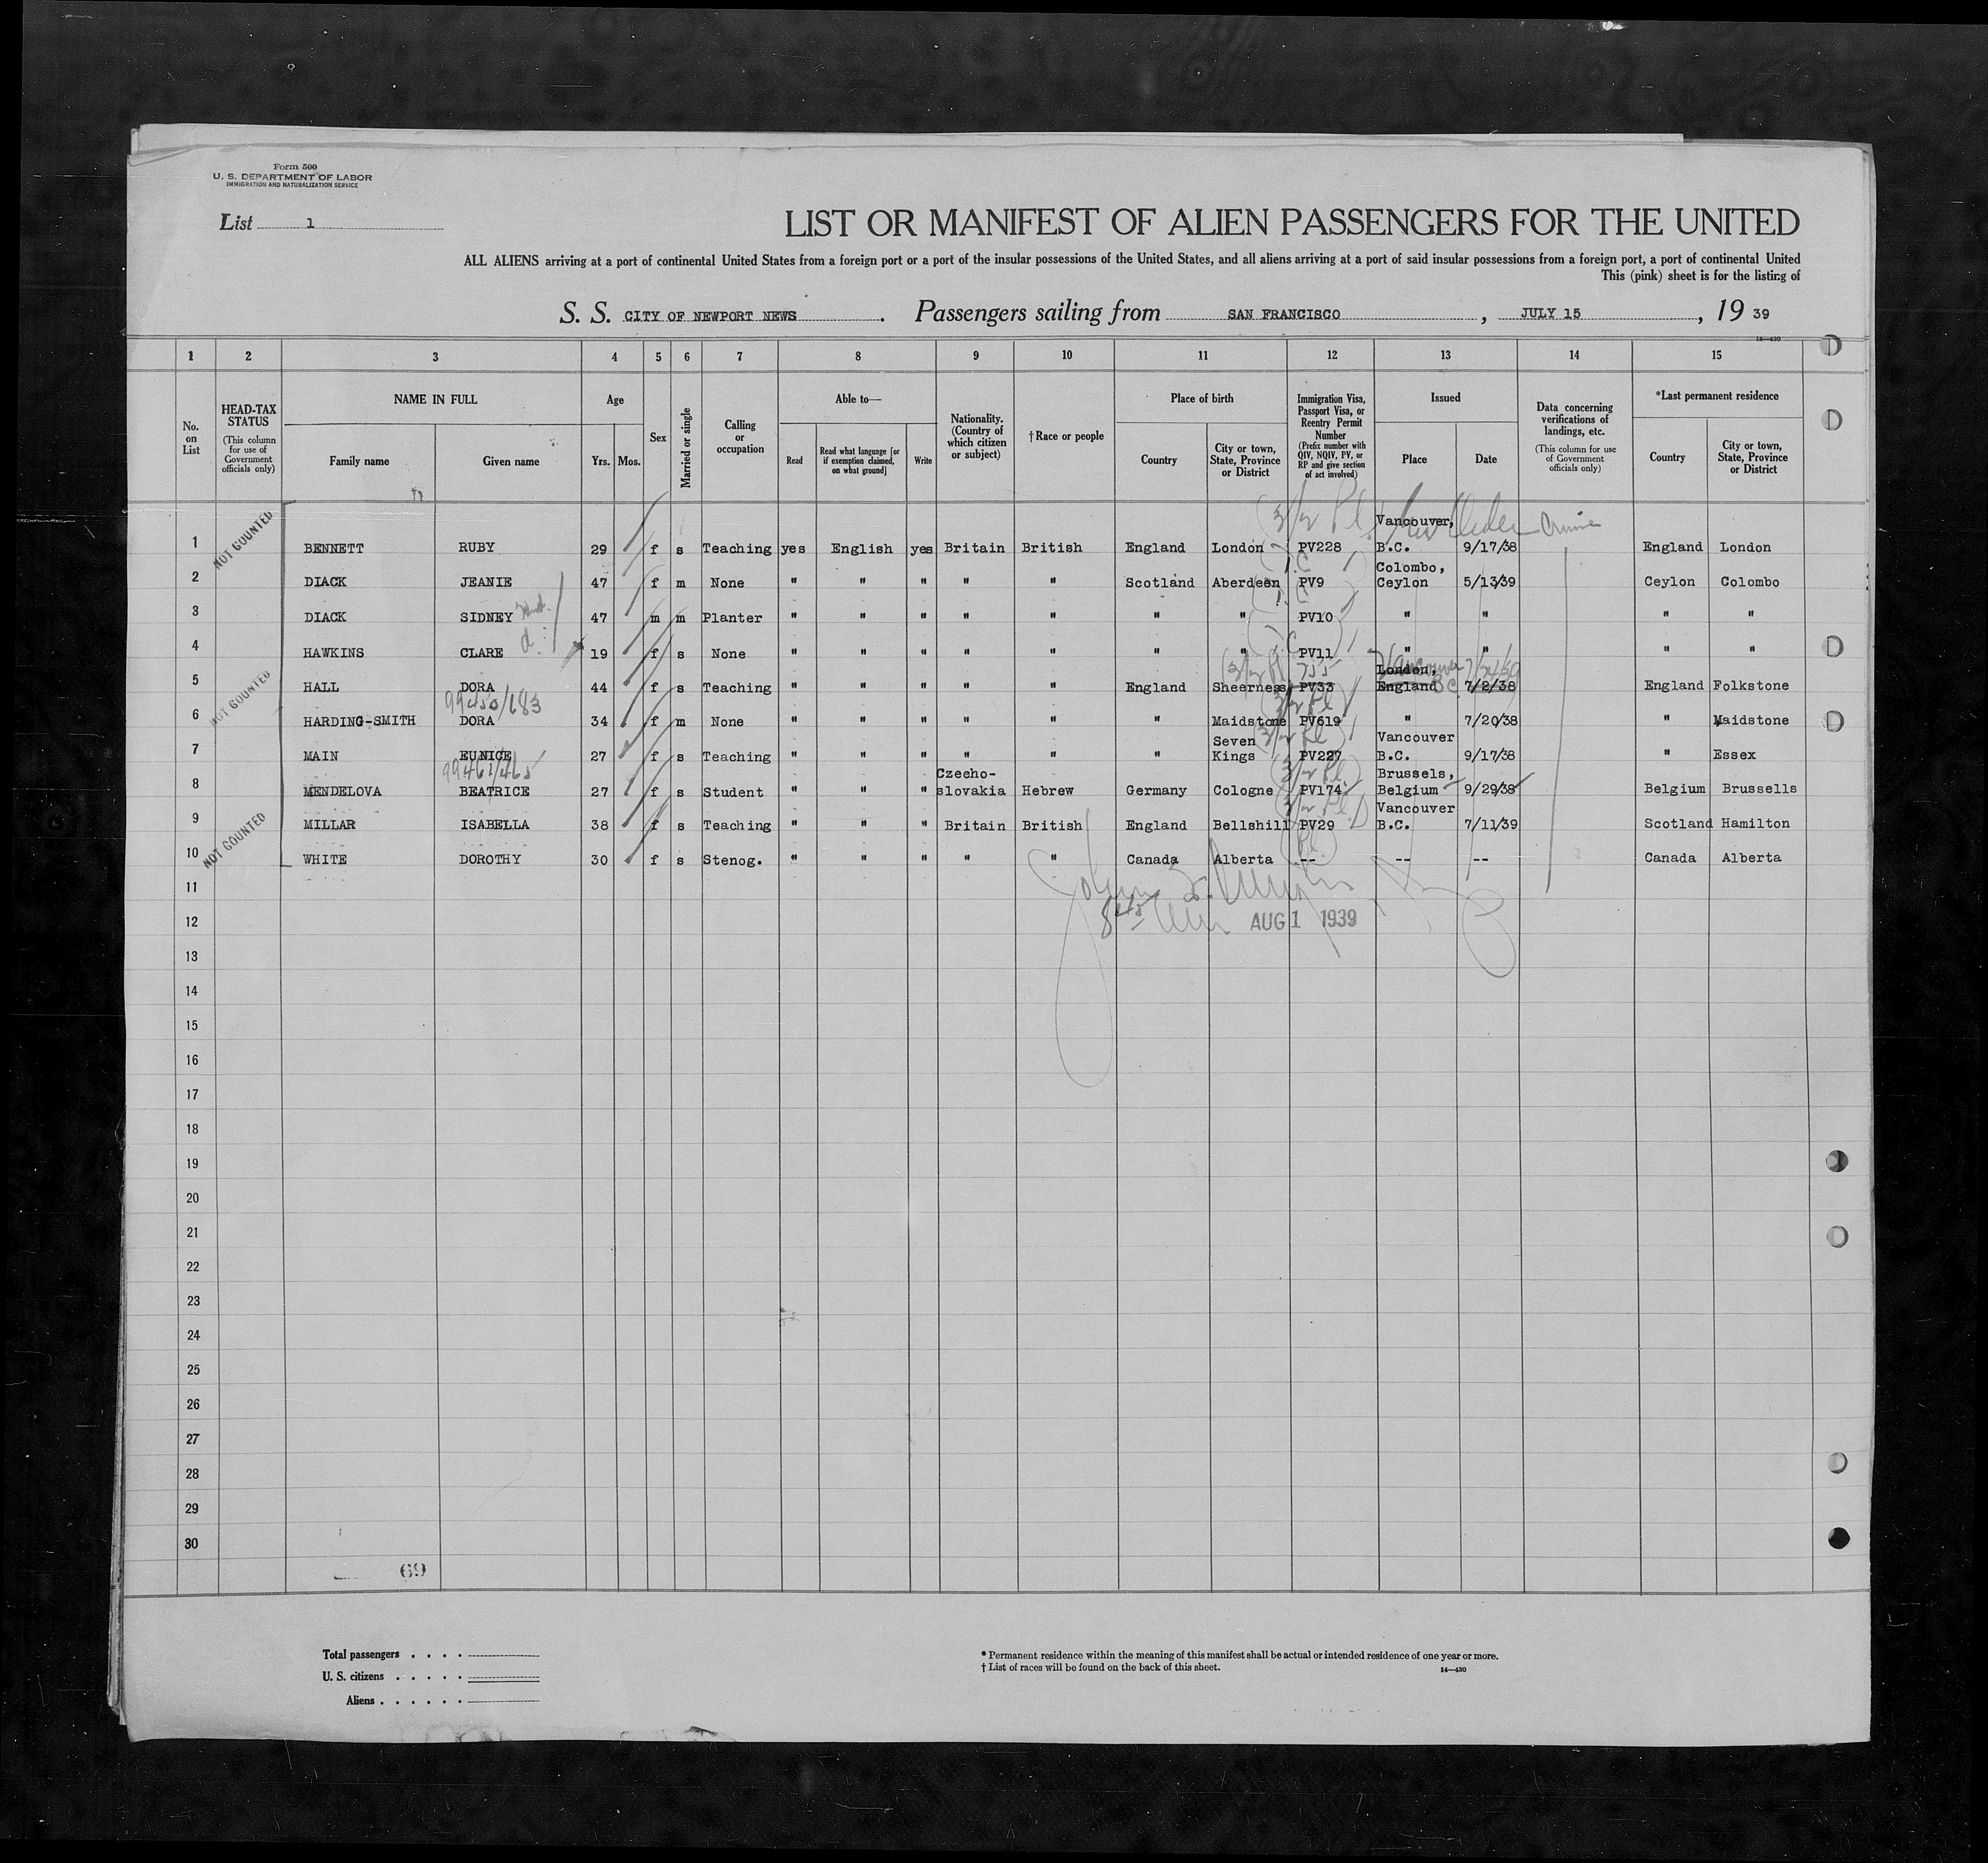 Form 500
U. S. DEPARTMENT OF LABOR
IMMIGRATION AND NATURALIZATION SERVICE
List 1
LIST OR MANIFEST OF ALIEN PASSENGERS FOR THE UNITED
ALL ALIENS arriving at a port of continental United States from a foreign port or a port of the insular possessions of the United States, and all aliens arriving at a port of said insular possessions from a foreign port, a port of continental United
This (pink) sheet is for the listing of
S. S. CITY OF NEWPORT NEWS. Passengers sailing from SAN FRANCISCO, JULY 15, 19 39
14—430
1 2 3 4 5 6 7 8 9 10 11 12 13 14 15
No. on List
HEAD-TAX STATUS (This column for use of Government officials only)
NAME IN FULL
Family name Given name
Age
Yrs. Mos.
Sex
Married or single
Calling or occupation
Able to—
Read
Read what language [or if exemption claimed, on what ground]
Write
Nationality. (Country of which citizen or subject)
†Race or people
Place of birth
Country
City or town, State, Province or District
Immigration Visa, Passport Visa, or Reentry Permit Number (Prefix number with QIV, NQIV, PV, or RP and give section of act involved)
Issued
Place Date
Data concerning verifications of landings, etc. (This column for use of Government officials only)
*Last permanent residence
Country
City or town, State, Province or District
NOT COUNTED
1 BENNETT RUBY 29 f s Teaching yes English yes Britain British England London PV228 Vancouver, B.C. 9/17/38 England London
2 DIACK JEANIE 47 f m None " " " " " Scotland Aberdeen PV9 Colombo, Ceylon 5/13/39 Ceylon Colombo
3 DIACK SIDNEY 47 m m Planter " " " " " " " PV10 " " " "
4 HAWKINS CLARE 19 f s None " " " " " " " PV11 " " " "
NOT COUNTED
5 HALL DORA 44 f s Teaching " " " " " England Sheerness PV33 755 London, England 7/2/38 Vancouver BC England Folkstone
99450/683
6 HARDING-SMITH DORA 34 f m None " " " " " " Maidstone PV619 " 7/20/38 " Maidstone
7 MAIN EUNICE 27 f s Teaching " " " " " " Seven Kings PV227 Vancouver B.C. 9/17/38 " Essex
99461/465
8 MENDELOVA BEATRICE 27 f s Student " " " Czecho-slovakia Hebrew Germany Cologne PV174 Brussels, Belgium 9/29/38 Belgium Brussells
NOT COUNTED
9 MILLAR ISABELLA 38 f s Teaching " " " Britain British England Bellshill PV29 Vancouver B.C. 7/11/39 Scotland Hamilton
10 WHITE DOROTHY 30 f s Stenog. " " " " " Canada Alberta -- -- -- Canada Alberta
11
12 AUG 1 1939
13
14
15
16
17
18
19
20
21
22
23
24
25
26
27
28
29
30
69
Total passengers . . . .
U. S. citizens . . . . .
Aliens . . . . . .
* Permanent residence within the meaning of this manifest shall be actual or intended residence of one year or more.
† List of races will be found on the back of this sheet.
14—430